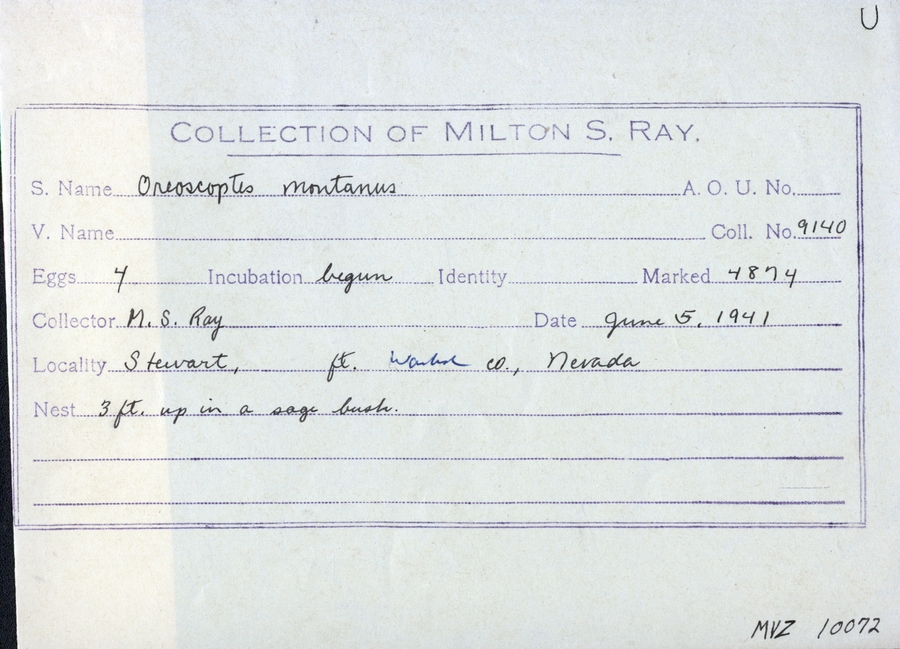 U
COLLECTION OF MILTON S. RAY.
S. Name Oreoscoptes montanus A. O. U. No.
V. Name Coll. No. 9140
Eggs 4 Incubation begun Identity Marked 4874
Collector M. S. Ray Date June 5, 1941
Locality Stewart, ft. co., Nevada
Nest 3 ft. up in a sage bush.
MVZ 10072